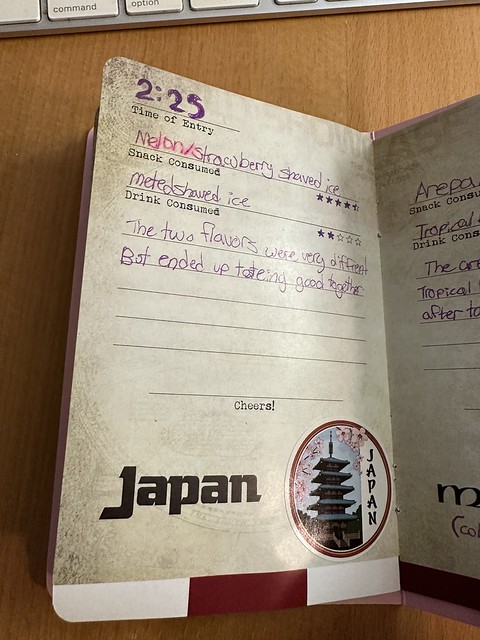 command
option
2:25
Time of Entry
Melon/strawberry shaved ice
Snack Consumed
meted shaved ice
Drink Consumed
The two flavors were very diffrent
But ended up tasteing good together
Cheers!
Japan
JAPAN
Arepa
Snack Consu
Tropical
Drink Cons
The are
Tropical
after to
m
(col